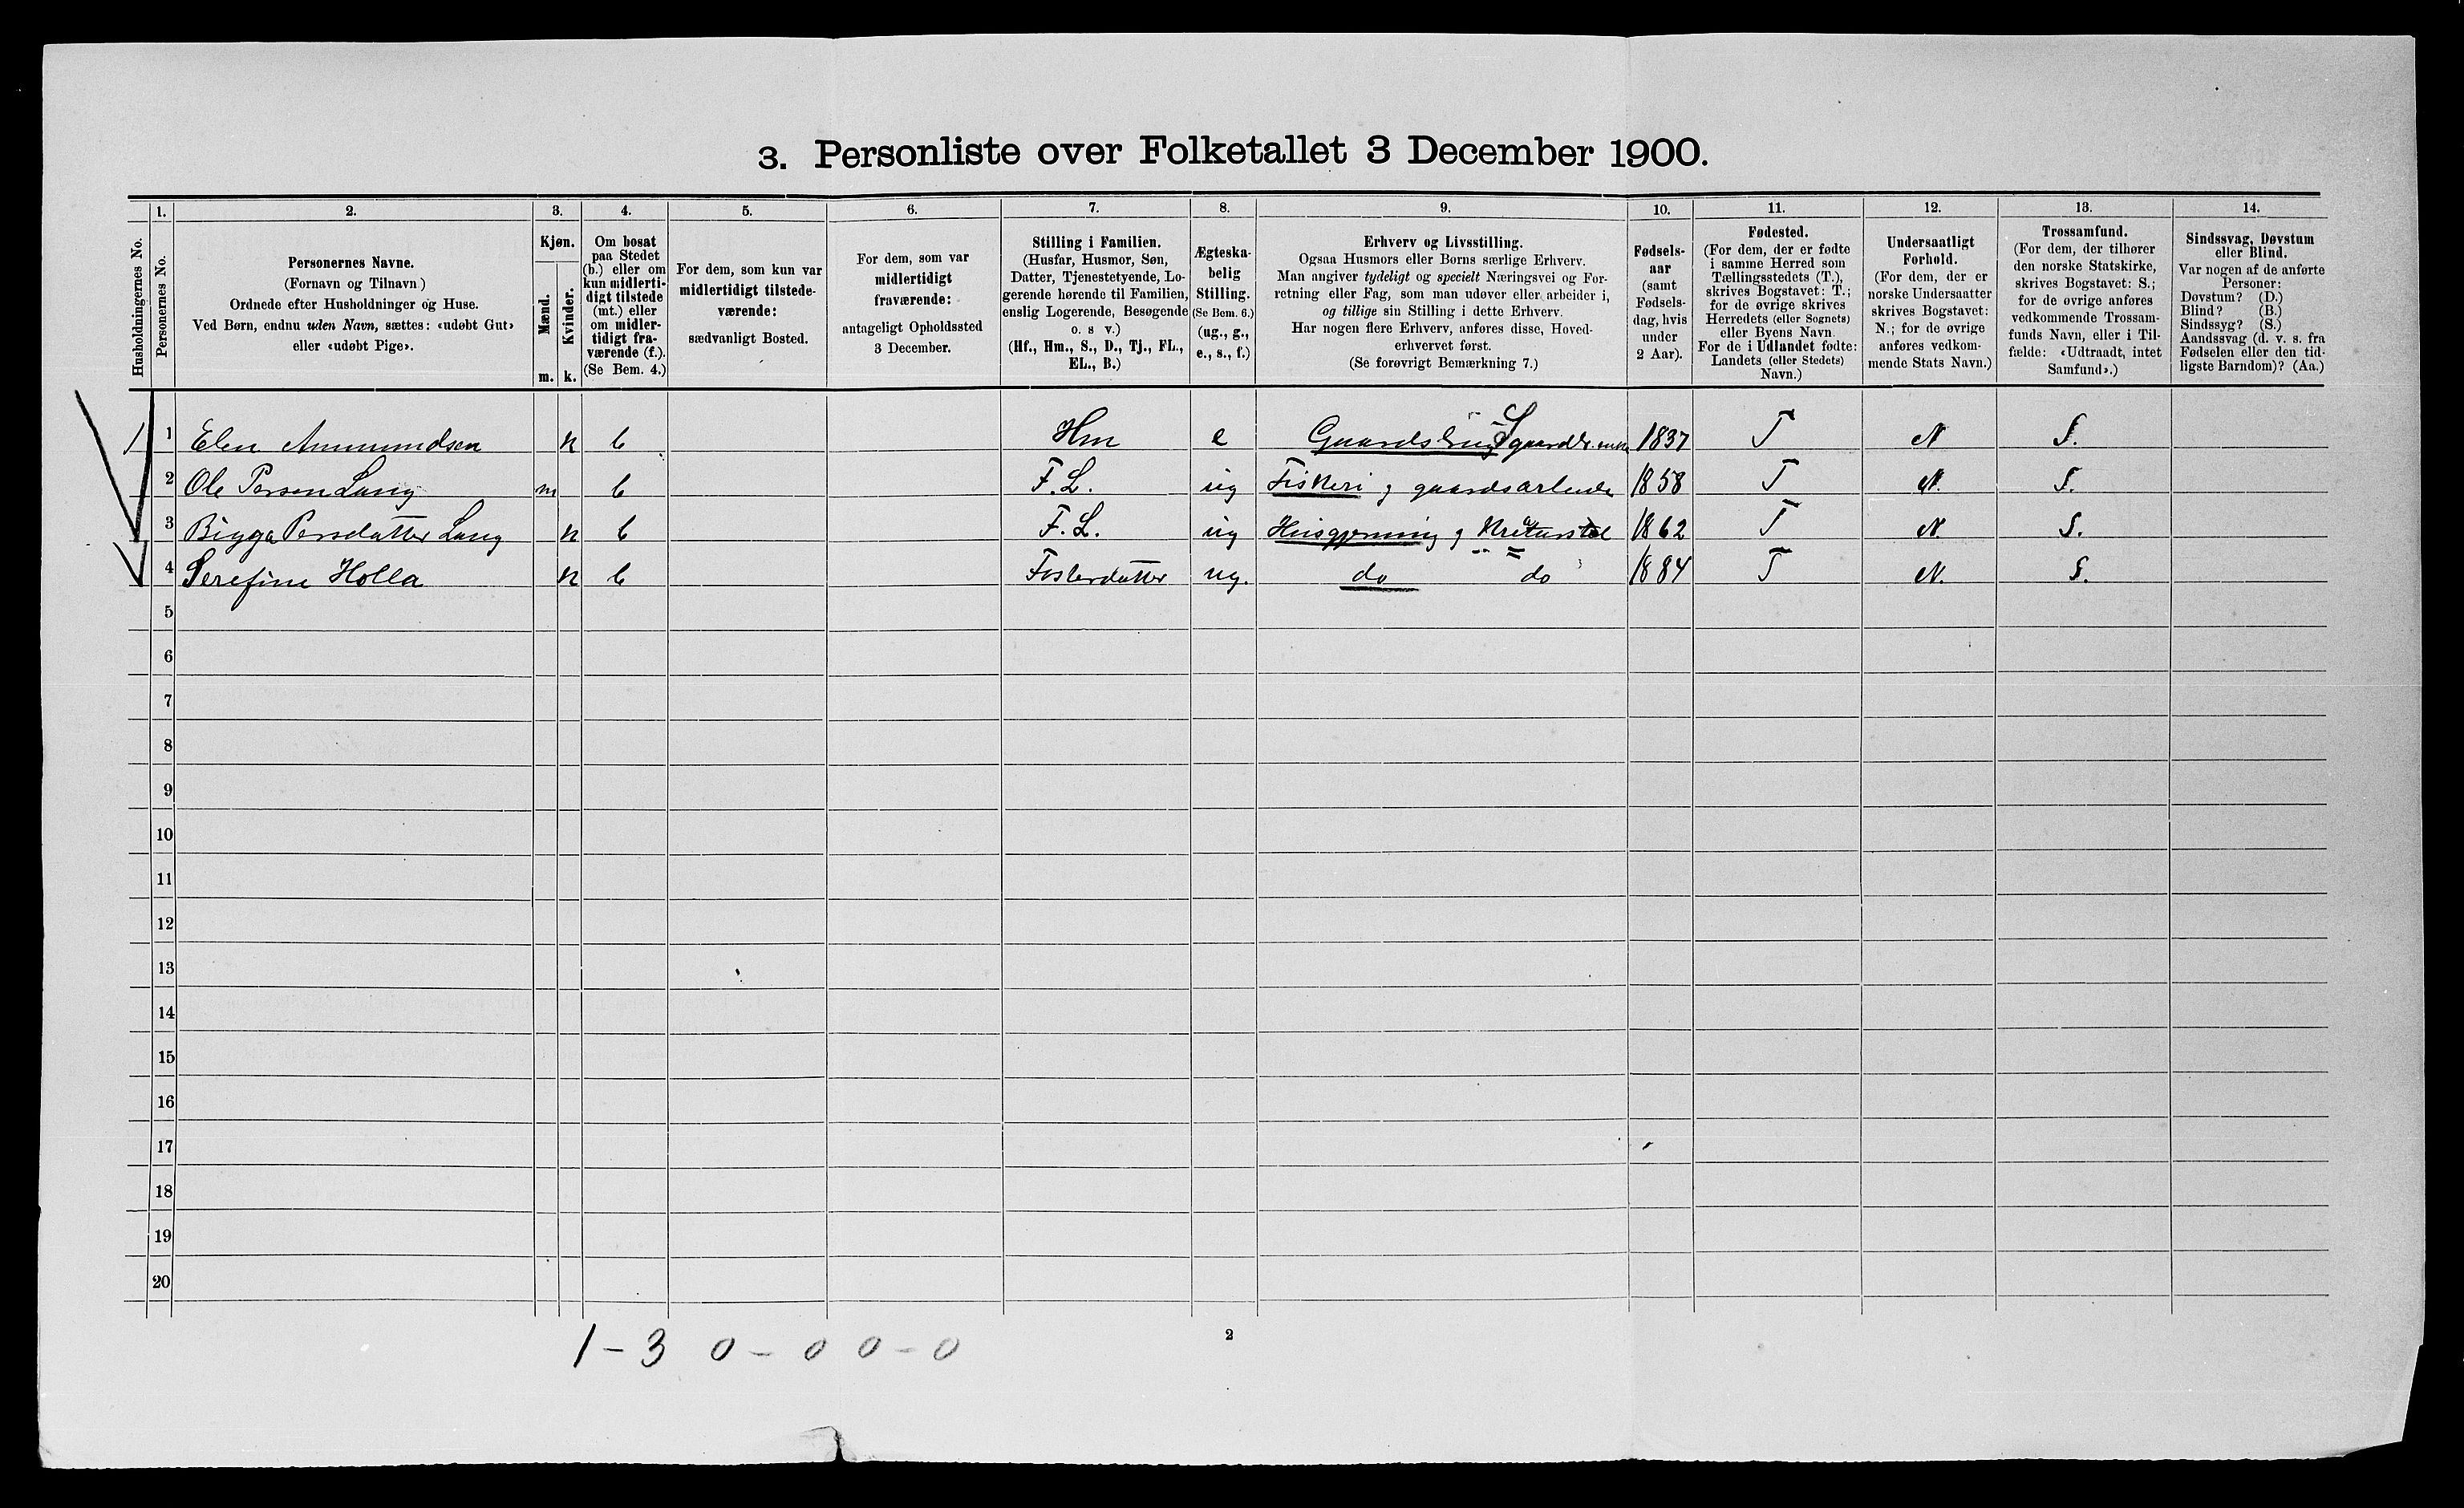 3. Personliste over Folketallet 3 December 1900.
Husholdningernes No.
1.
Personernes No.
2.
Personernes Navne.
(Fornavn og Tilnavn)
Ordnede efter Husholdninger og Huse.
Ved Børn, endnu uden Navn, sættes: «udøbt Gut»
eller «udøbt Pige».
3.
Kjøn.
Mænd.
Kvinder.
m. k.
4.
Om bosat
paa Stedet
(b.) eller om
kun midlerti-
digt tilstede
(mt.) eller
om midler-
tidigt fra-
værende (f.).
(Se Bem. 4.)
5.
For dem, som kun var
midlertidigt tilstede-
værende:
sædvanligt Bosted.
6.
For dem, som var
midlertidigt
fraværende:
antageligt Opholdssted
3 December.
7.
Stilling i Familien.
(Husfar, Husmor, Søn,
Datter, Tjenestetyende, Lo-
gerende hørende til Familien,
enslig Logerende, Besøgende
o. s v.)
(Hf., Hm., S., D., Tj., FL.,
EL., B.)
8.
Ægteska-
belig
Stilling.
(Se Bem. 6.)
(ug., g.,
e., s., f.)
9.
Erhverv og Livsstilling.
Ogsaa Husmors eller Børns særlige Erhverv.
Man angiver tydeligt og specielt Næringsvei og For-
retning eller Fag, som man udøver eller arbeider i,
og tillige sin Stilling i dette Erhverv.
Har nogen flere Erhverv, anføres disse, Hoved-
erhvervet først.
(Se forøvrigt Bemærkning 7.)
10.
Fødsels-
aar
(samt
Fødsels-
dag, hvis
under
2 Aar).
11.
Fødested.
(For dem, der er fødte
i samme Herred som
Tællingsstedets (T.),
skrives Bogstavet: T.;
for de øvrige skrives
Herredets (eller Sognets)
eller Byens Navn.
For de i Udlandet fødte:
Landets (eller Stedets)
Navn.)
12.
Undersaatligt
Forhold.
(For dem, der er
norske Undersaatter
skrives Bogstavet:
N.; for de øvrige
anføres vedkom-
mende Stats Navn.)
13.
Trossamfund.
(For dem, der tilhører
den norske Statskirke,
skrives Bogstavet: S.;
for de øvrige anføres
vedkommende Trossam-
funds Navn, eller i Til-
fælde: «Udtraadt, intet
Samfund».)
14.
Sindssvag, Døvstum
eller Blind.
Var nogen af de anførte
Personer:
Døvstum? (D.)
Blind? (B.)
Sindssyg? (S.)
Aandssvag (d. v. s. fra
Fødselen eller den tid-
ligste Barndom)? (Aa.)
1 1 Elen Ammundsen k b Hm e Gaardsbrug S gaardbr. enke 1837 T N S.
2 Ole Persen Lang m b F.L. ug Fiskeri g gaardsarbeide 1858 T N. S.
3 Bigga Persdatter Lang k b F.L. ug Husgjerning g Kreaturstel 1862 T N. S.
4 Serefine Holla k b Fosterdatter ug. do do 1884 T N. S.
5
6
7
8
9
10
11
12
13
14
15
16
17
18
19
20
1 – 3 0 – 0 0 – 0
2